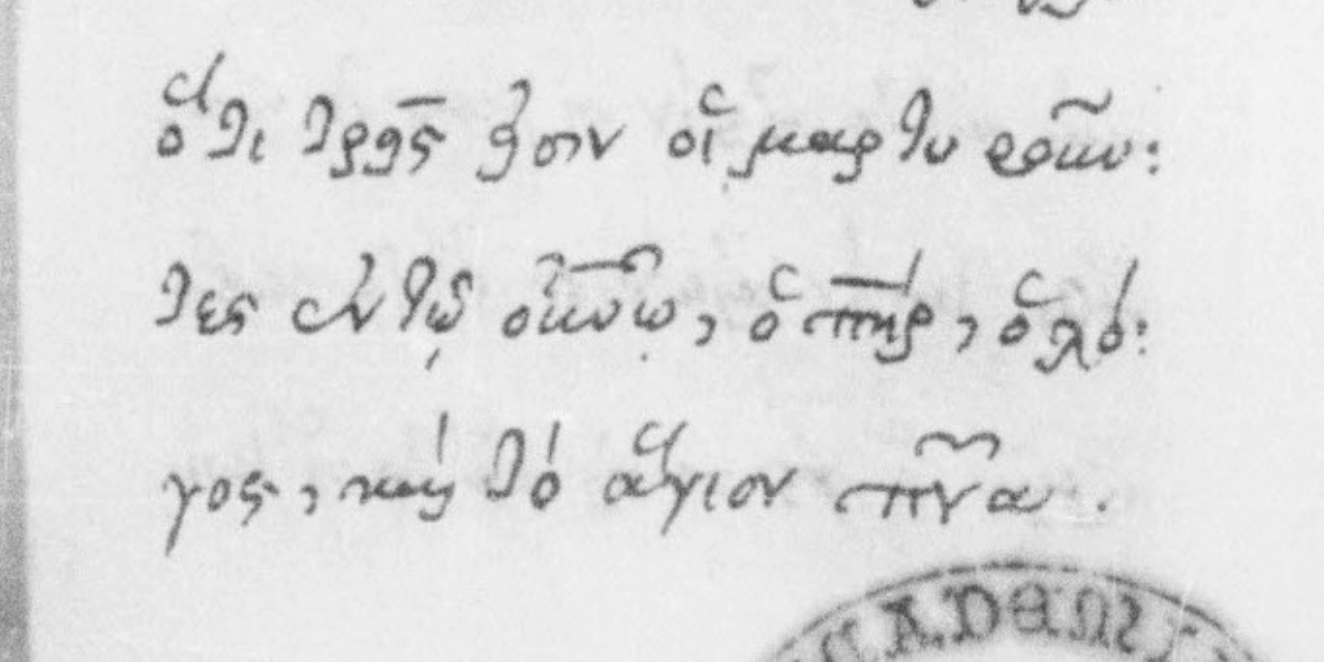 ὅτι τρεῖς εἰσιν οἱ μαρτυροῦν:
τες ἐν τῷ οὐνῷ, ὁ πηρ, ὁ λό:
γος, καὶ τὸ ἅγιον πνα.